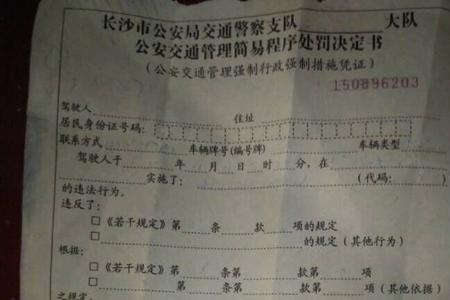 长沙市公安局交通警察支队 大队
公安交通管理简易程序处罚决定书
(公安交通管理强制行政强制措施凭证)
150896203
驾驶人 住址
居民身份证号码:
联系方式 车辆牌号(编号牌) 车辆类型
驾驶人于 年 月 日 时 分,在
实施了: (代码: )
的违法行为。
违反了:
□《若干规定》第 条 款 项的规定
□ 的规定(其他行为)
根据:
□《若干规定》第 条第 款第 项
□ 第 条第 款第 项(其他
之规定。